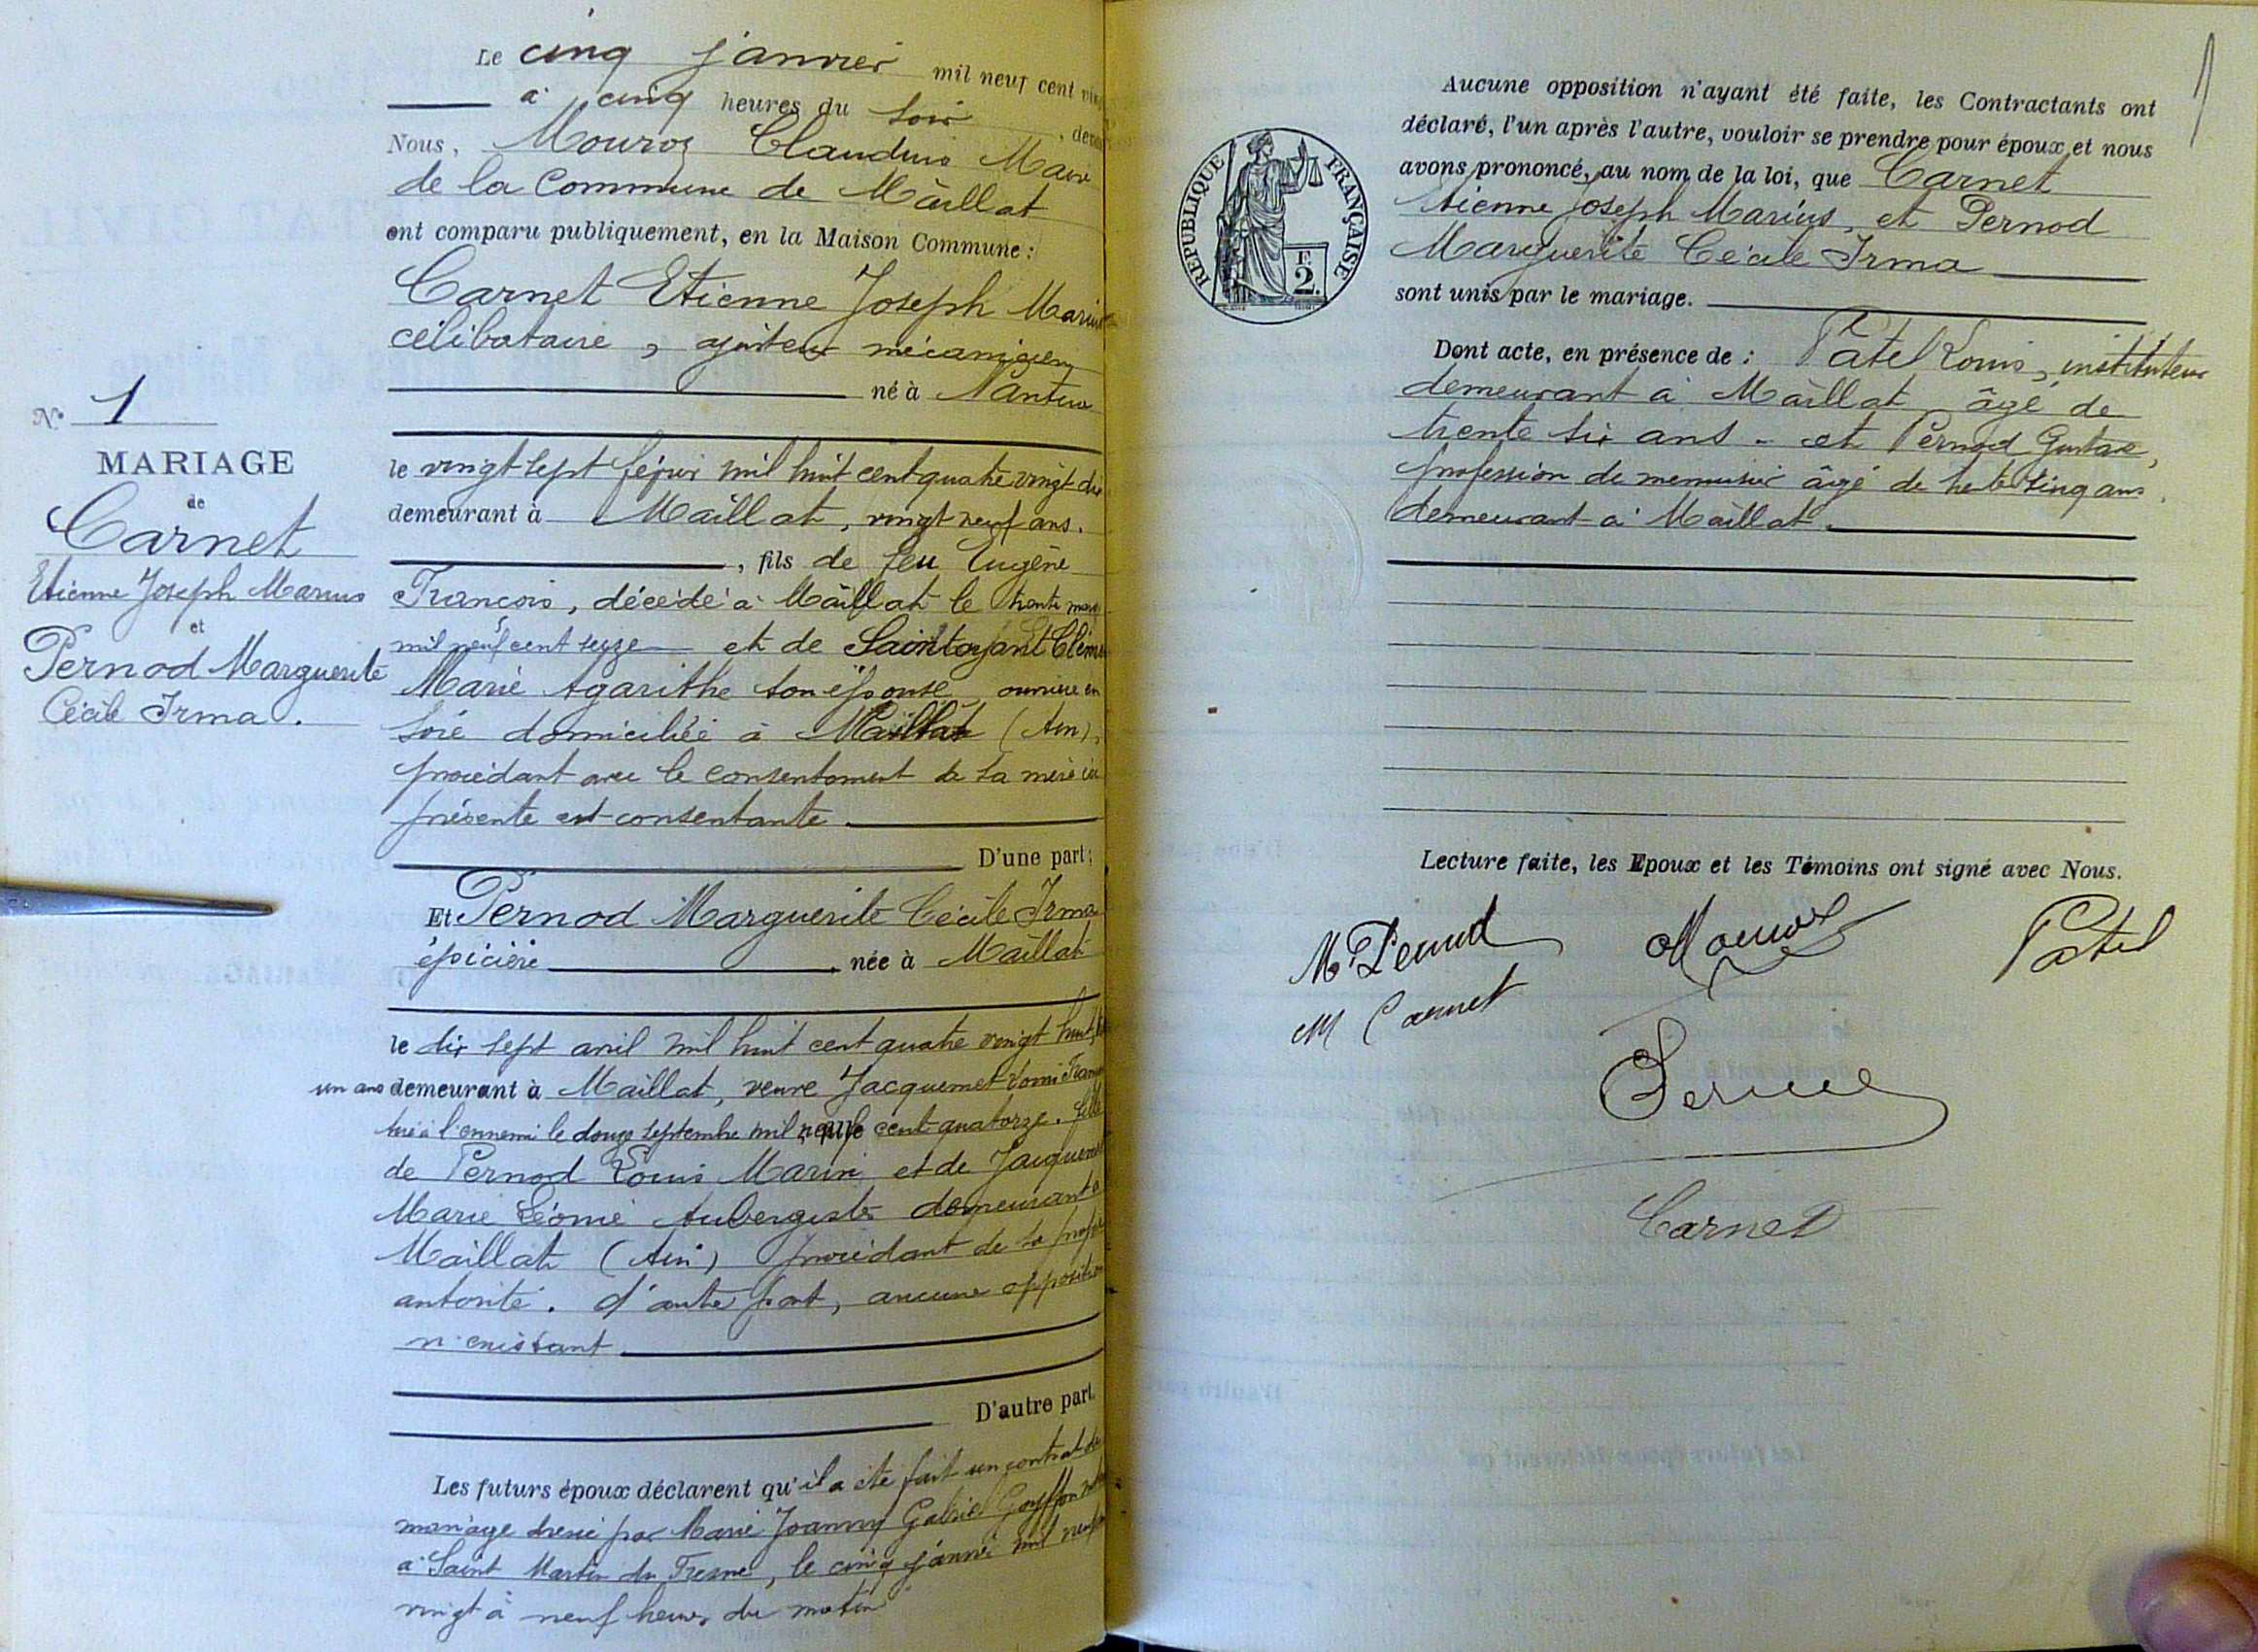 Le cinq janvier mil neuf cent
à cinq heures du soir
Nous, Mouroz Claudius Maire
de la Commune de Maillat
ont comparu publiquement, en la Maison Commune :
Carnet Etienne Joseph Marius
célibataire, ajusteur mécanicien
né à Nantua
N° 1
MARIAGE
de
Carnet
Etienne Joseph Marius
et
Pernod Marguerite
Cécile Irma.
le vingt sept mil huit cent quatre vingt dix
demeurant à Maillat, vingt neuf ans.
, fils de feu Eugène
François, décédé à Maillat le trente mars
mil neuf cent seize et de Saintoyant
Marie Agarithe son épouse, ouvrière en
soie domiciliée à Maillat (Ain),
procédant avec le consentement de sa mère ici
présente et consentante.
D'une part ;
Et Pernod Marguerite Cécile Irma
épicière, née à Maillat
le dix sept avril mil huit cent quatre vingt huit,
un ans demeurant à Maillat, veuve Jacquemet
tué à l'ennemi le douze septembre mil neuf cent quatorze. fille
de Pernod Louis Marin et de Jacquemet
Marie Léonie Aubergistes demeurant à
Maillat (Ain) procédant de sa propre
autorité. d'autre part, aucune opposition
n'existant
D'autre part.
Les futurs époux déclarent qu'il a été fait un contrat de
mariage dressé par Marie Joanny Gabriel Goyffon
à Saint Martin du Fresne, le cinq janvier mil neuf
vingt à neuf heures du matin
1
REPUBLIQUE FRANÇAISE
F.
2.
Aucune opposition n'ayant été faite, les Contractants ont
déclaré, l'un après l'autre, vouloir se prendre pour époux et nous
avons prononcé, au nom de la loi, que Carnet
Etienne Joseph Marius, et Pernod
Marguerite Cécile Irma
sont unis par le mariage.
Dont acte, en présence de : Patel Louis, instituteur
demeurant à Maillat âgé de
trente six ans - et Pernod Gustave,
profession de menuisier âgé de trente cinq ans,
demeurant à Maillat.
Lecture faite, les Epoux et les Témoins ont signé avec Nous.
M. Pernod
Mouroz
Patel
M Carnet
Carnet